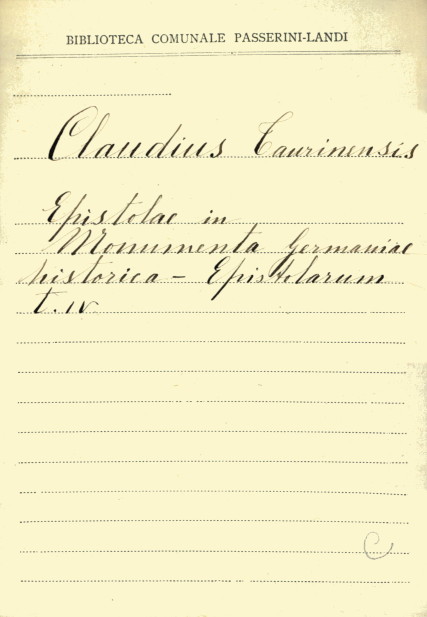 BIBLIOTECA COMUNALE PASSERINI-LANDI
Claudius Taurinensis
Epistolae in
Monumenta Germaniae
historica - Epistolarum
t. IV
C